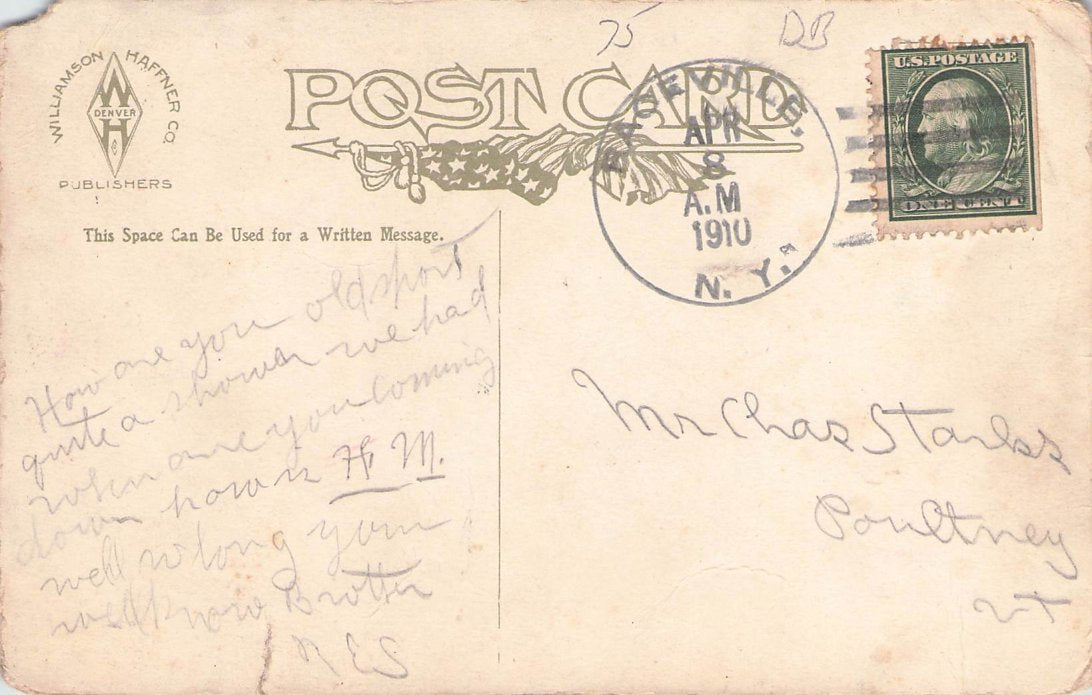 75
DB
WILLIAMSON HAFFNER CO.
W
DENVER
H
PUBLISHERS
POST CARD
EVILLE,
APR
8
A.M
1910
N. Y.
U.S. POSTAGE
ONE CENT
This Space Can Be Used for a Written Message.
How are you old sport
quite a shower we had
when are you coming
down how is H M.
well
Brother
Mr Chas Starks
Poultney
Vt